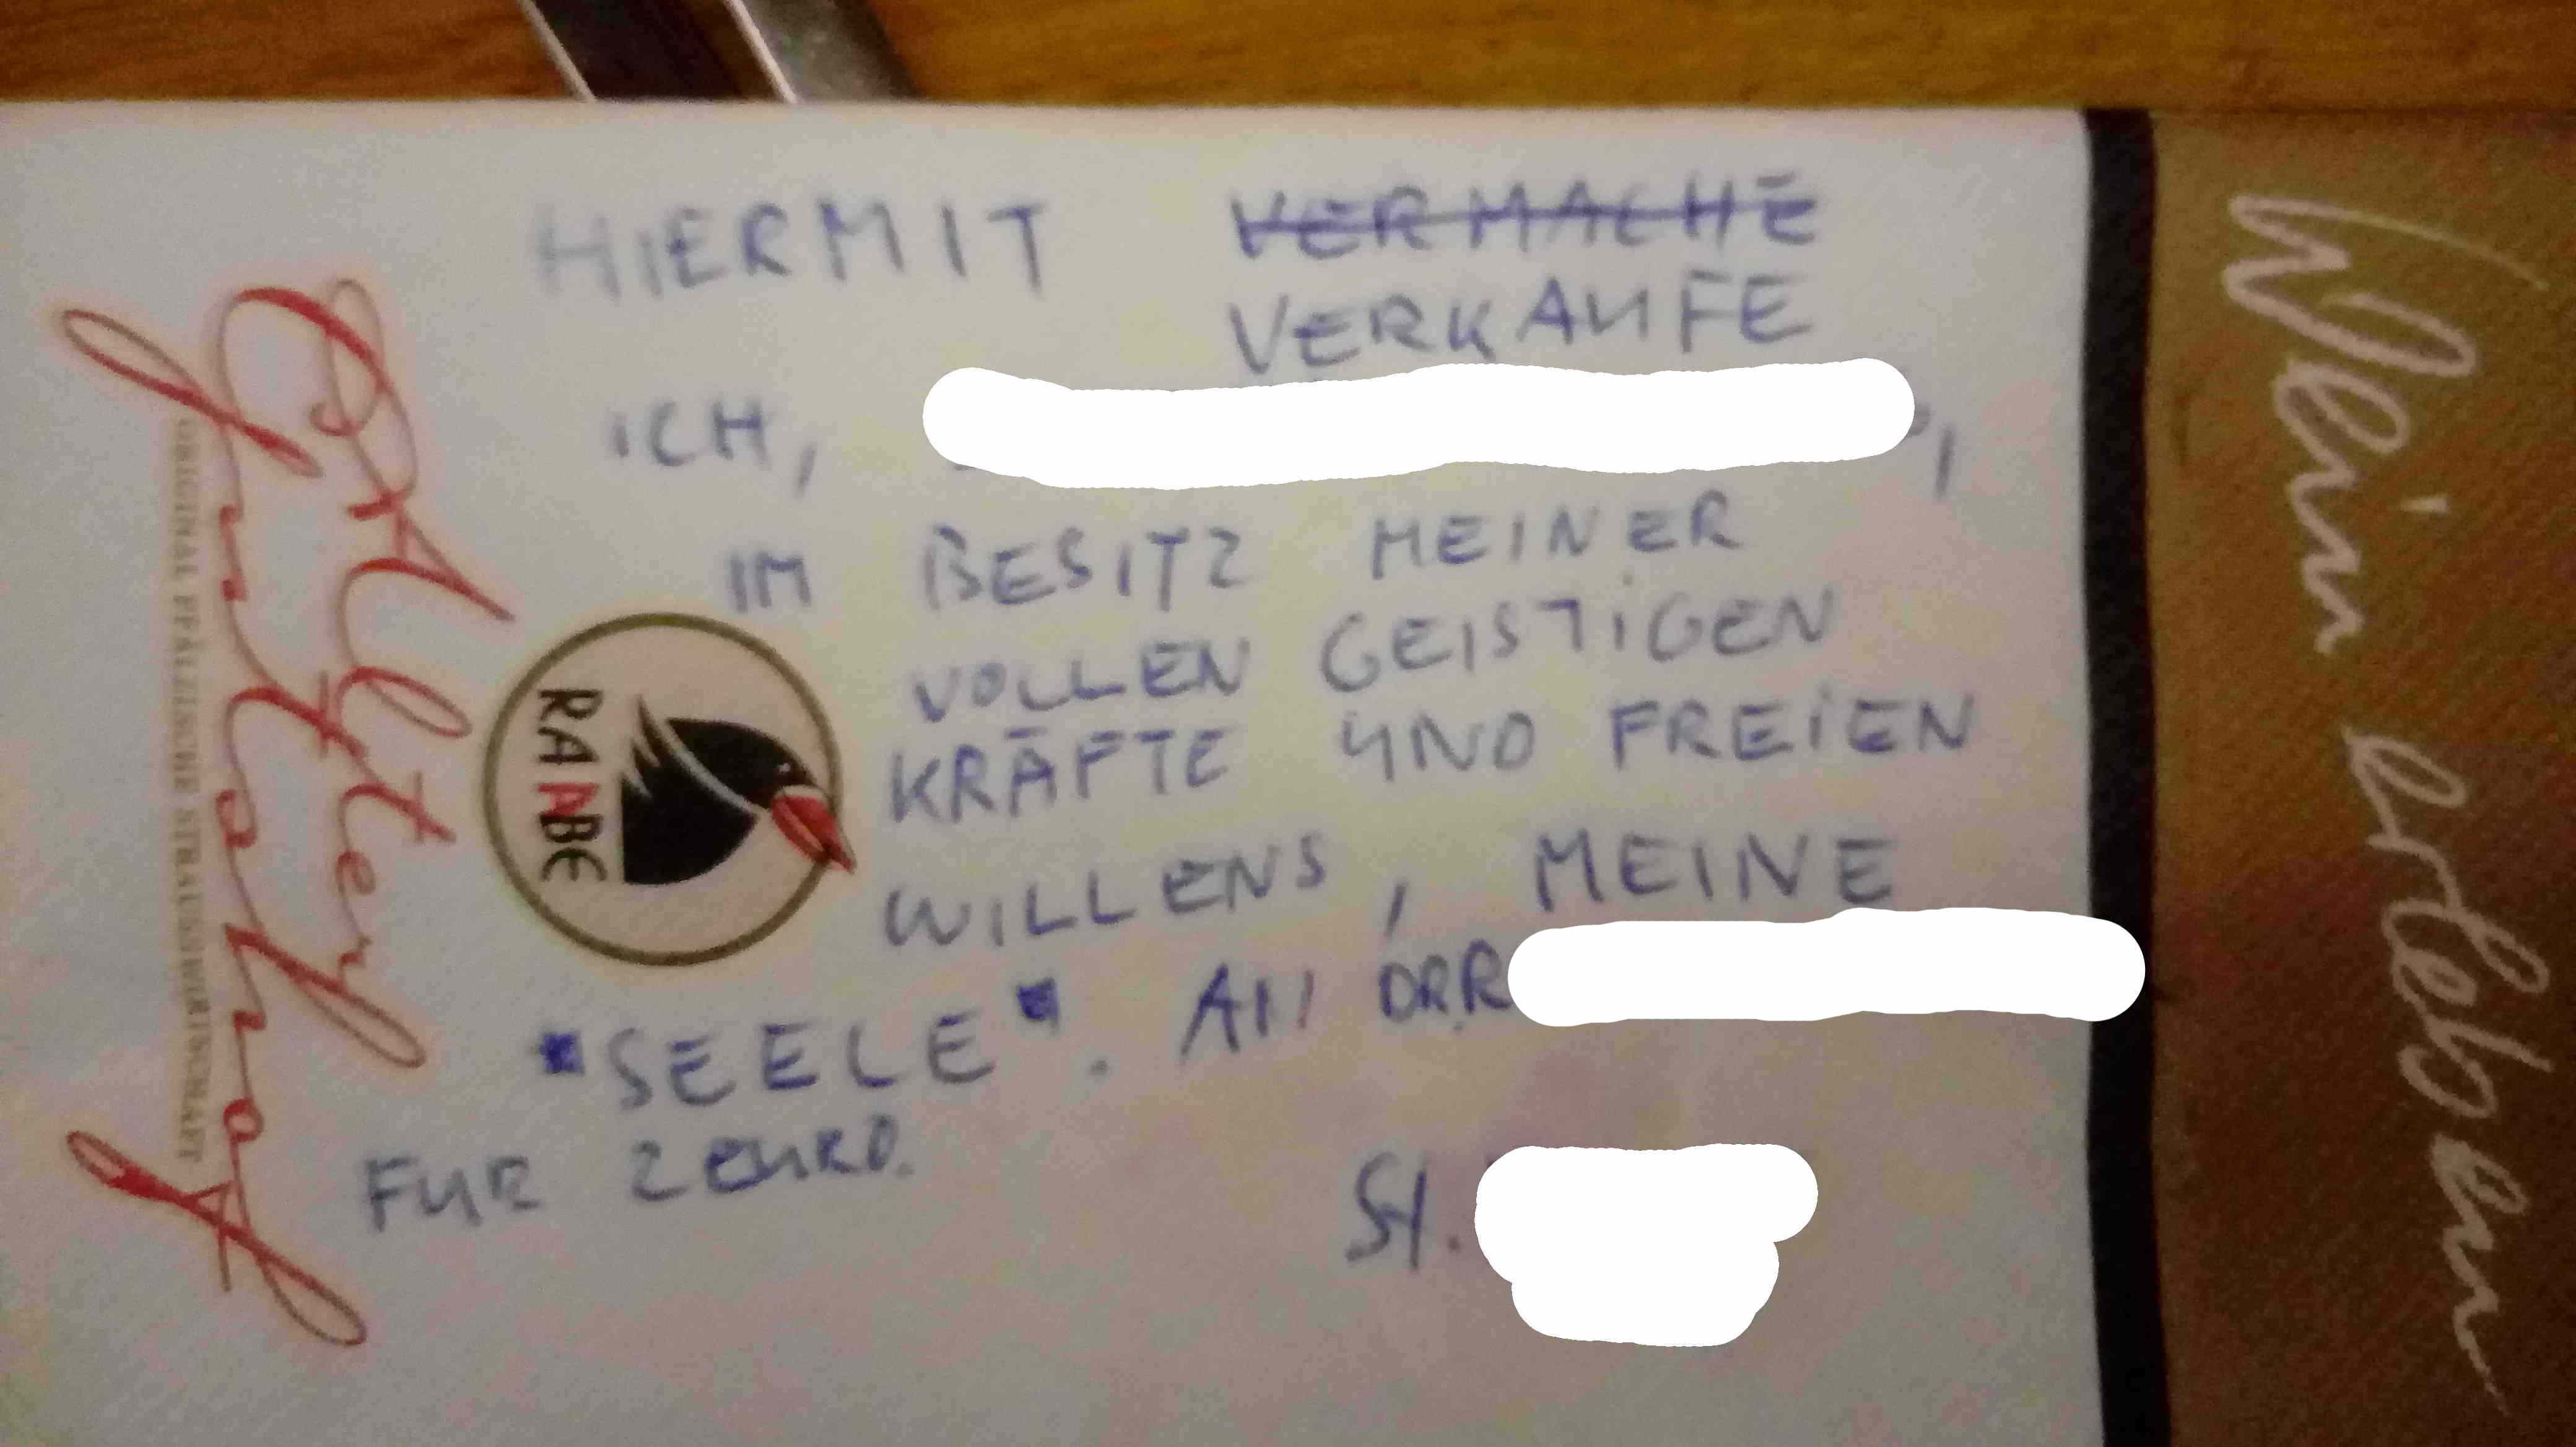 HIERMIT VERMACHE
VERKAUFE
ICH,
IM BESITZ MEINER
VOLLEN GEISTIGEN
KRÄFTE UND FREIEN
WILLENS, MEINE
"SEELE". AN DR.R
FUR 2 EURO.
St.
Alter
Gutshof
ORIGINAL PFÄLZISCHE STRAUSSWIRTSCHAFT
RAABE
Wein erleben